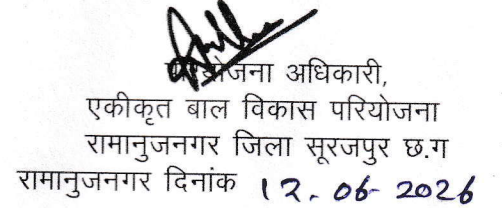 परियोजना अधिकारी,
एकीकृत बाल विकास परियोजना
रामानुजनगर जिला सूरजपुर छ.ग
रामानुजनगर दिनांक 12.06-2026